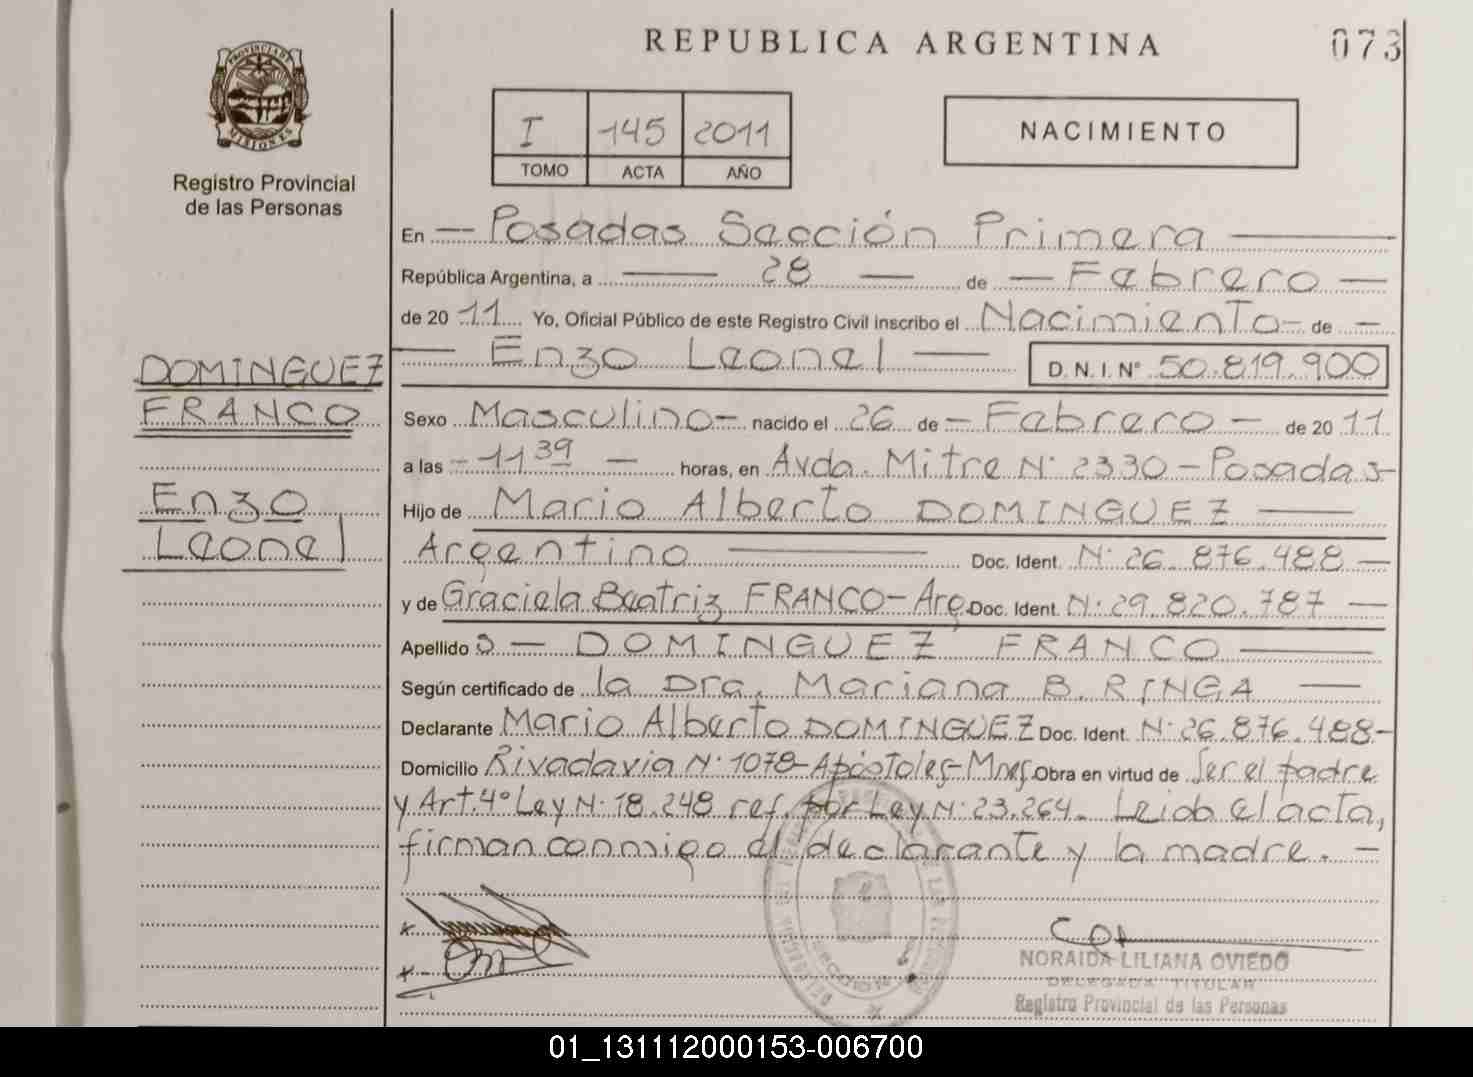 REPUBLICA ARGENTINA
073
PROVINCIA DE MISIONES
Registro Provincial
de las Personas
I 145 2011
TOMO ACTA AÑO
NACIMIENTO
En — Posadas Sección Primera —
República Argentina, a — 28 — de — Febrero —
de 2011 Yo, Oficial Público de este Registro Civil inscribo el Nacimiento – de –
— Enzo Leonel — D.N.I. Nº 50.819.900
DOMINGUEZ
FRANCO
Enzo
Leonel
Sexo Masculino – nacido el 26 de – Febrero – de 2011
a las – 11 39 – horas, en Avda. Mitre Nº 2330 – Posadas –
Hijo de Mario Alberto DOMINGUEZ —
Argentino — Doc. Ident. Nº 26.876.488 —
y de Graciela Beatriz FRANCO – Arg. Doc. Ident. Nº 29.820.787 —
Apellido s – DOMINGUEZ FRANCO —
Según certificado de la Dra. Mariana B. RINGA —
Declarante Mario Alberto DOMINGUEZ Doc. Ident. Nº 26.876.488 –
Domicilio Rivadavia Nº 1078 – Apóstoles – Mnes. Obra en virtud de Ser el padre
y Art. 4º Ley Nº 18.248 ref. por Ley Nº 23.264. Leida el acta,
firman conmigo el declarante y la madre. –
NORAIDA LILIANA OVIEDO
DELEGADA TITULAR
Registro Provincial de las Personas
01_131112000153-006700